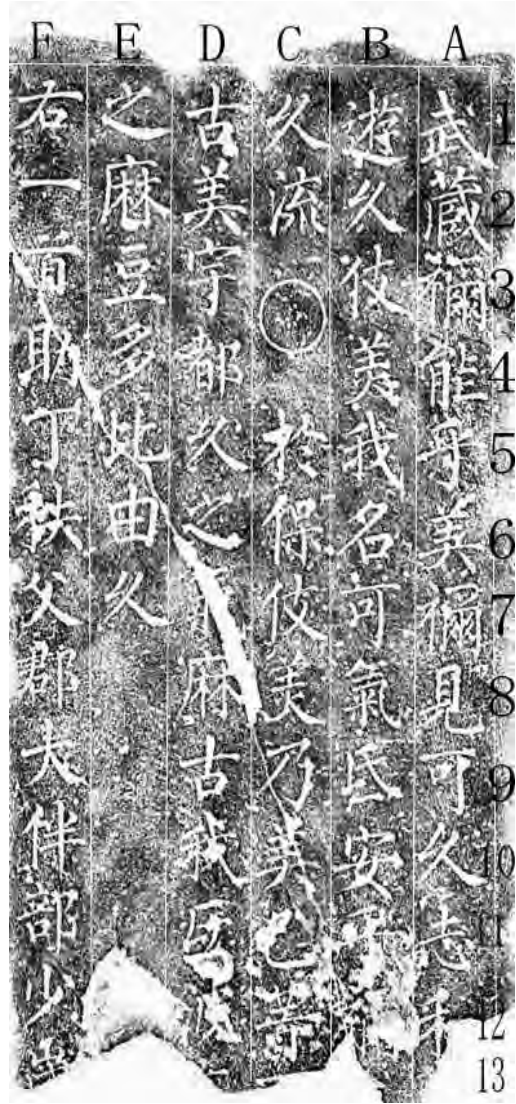 F E D C B A
1
2
3
4
5
6
7
8
9
10
11
12
13
武蔵禰能乎美禰見可久志
遊久伎美我名可氣氐安
久流 於保伎美乃美己等
古美宇都久之麻古我
之麻豆多比由久
右一首助丁秩父郡大伴部少